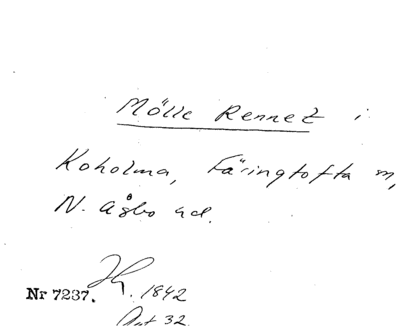 Mölle Rennet i
Koholma, Färingtofta m,
N. Åsbo hd.
Nr 7237. 1842
Art 32.